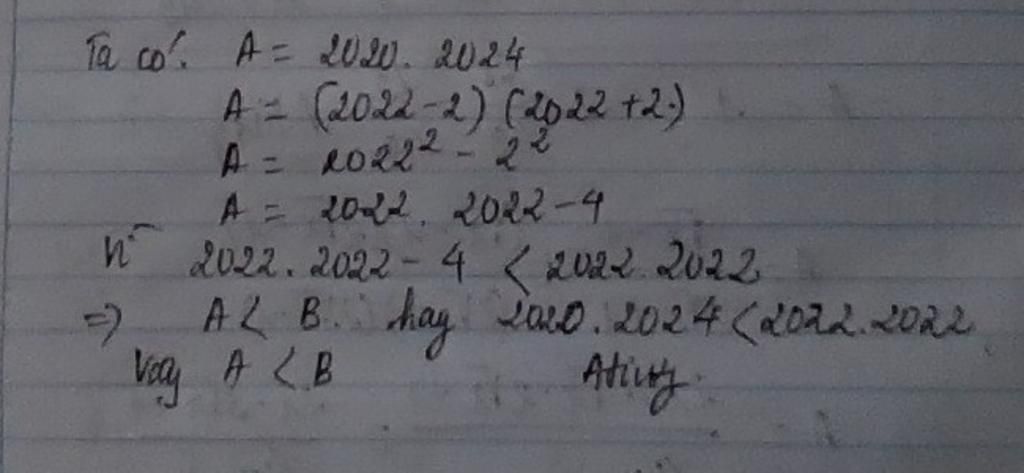 Ta có: A = 2020. 2024
A = (2022-2) (2022+2)
A = 2022² - 2²
A = 2022. 2022-4
Vì 2022. 2022 - 4 < 2022. 2022
=> A < B. hay 2020. 2024 < 2022. 2022
Vậy A < B